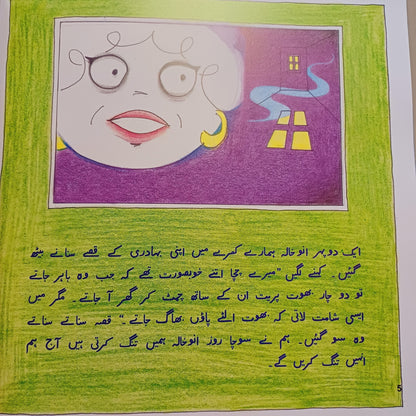 ایک دوپہر انو خالہ ہمارے کمرے میں اپنی بہادری کے قصے سنانے بیٹھ
گئیں۔ کہنے لگیں "میرے چچا اتنے خوبصورت تھے کہ جب وہ باہر جاتے
تو دو چار بھوت پریت ان کے ساتھ چمٹ کر گھر آ جاتے۔ مگر میں
ایسی شامت لاتی کہ بھوت الٹے پاؤں بھاگ جاتے۔" قصہ سناتے سناتے
وہ سو گئیں۔ ہم نے سوچا روز انو خالہ ہمیں تنگ کرتی ہیں آج ہم
انہیں تنگ کریں گے۔
5